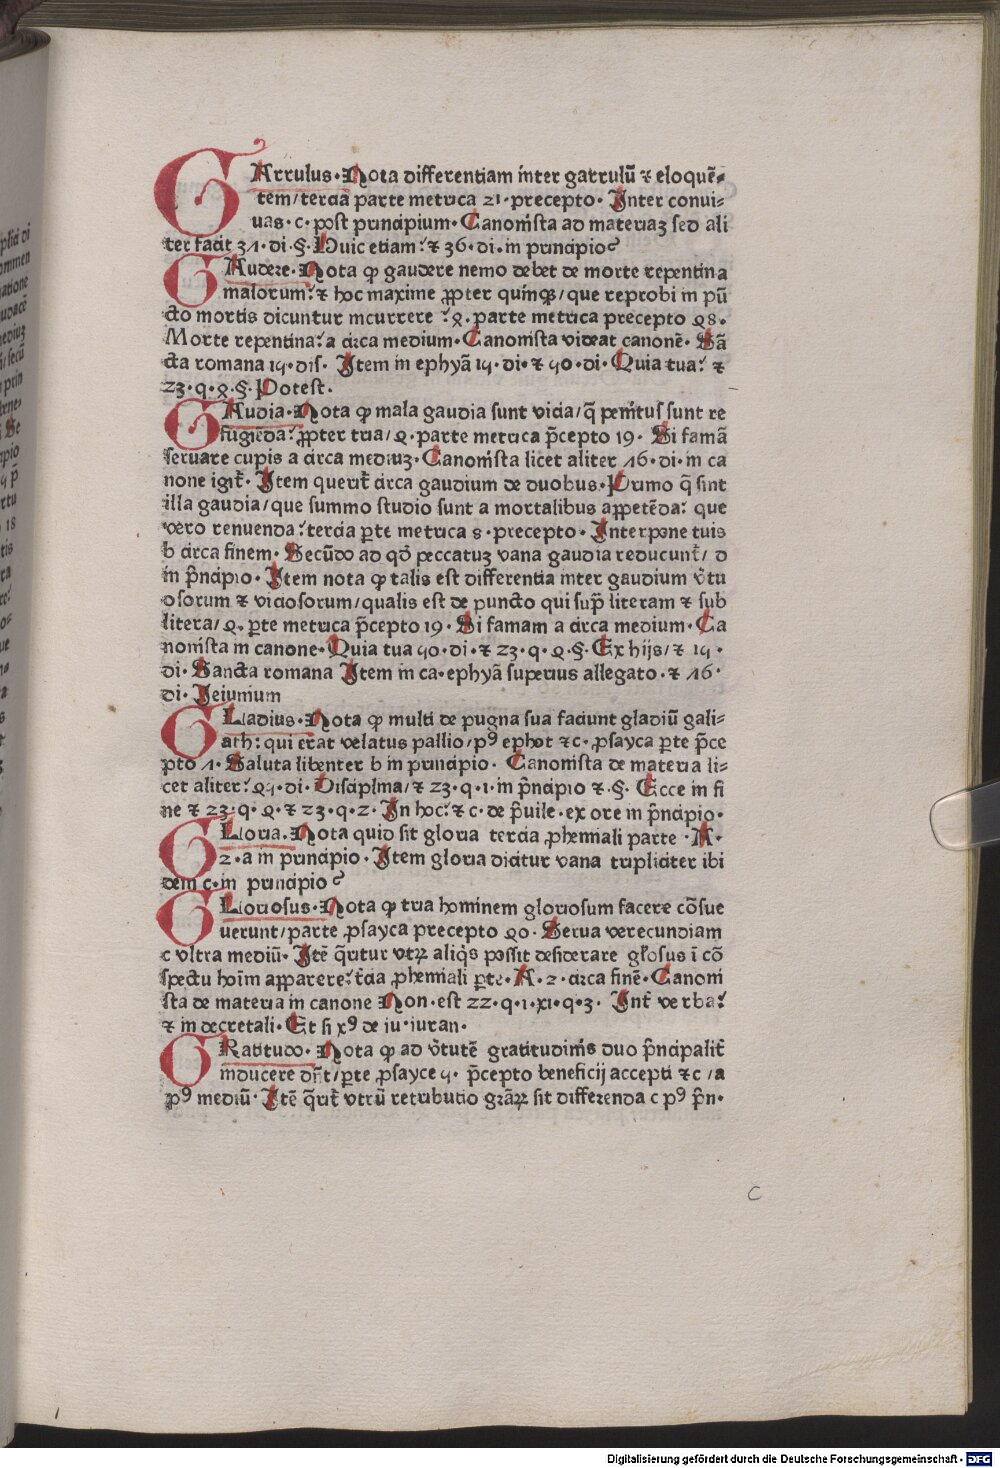 GArrulus· Nota differentiam inter garrulū ⁊ eloquē⸗
tem/tercia parte metrica 21· precepto· Inter conui⸗
uas· c· post principium· Canonista ad materiaꝫ sed ali
ter facit 31· di· §· Huic etiam? ⁊ 36· di· in principio?
GAudere· Nota ꝙ gaudere nemo debet de morte repentina
malorum? ⁊ hoc maxime ꝓpter quinqꝫ/ que reprobi in pū
cto mortis dicuntur incurrere? 2· parte metrica precepto 28·
Morte repentina? a circa medium· Canonista videat canonē· Sā
cta romana 15· dis· Item in ephyā 15· di· ⁊ 50· di· Quia tua? ⁊
23· q· 2· §· Potest·
GAudia· Nota ꝙ mala gaudia sunt vicia/ q̄ penitus sunt re
fugiēda? ꝓpter tria/ 2· parte metrica p̄cepto 19· Si famā
seruare cupis a circa mediuꝫ· Canonista licet aliter 16· di· in ca
none igit̄· Item querit̄ circa gaudium de duobus· Primo q̄ sint
illa gaudia/ que summo studio sunt a mortalibus appetēda? que
vero renuenda? tercia ꝑte metrica 8· precepto· Interpone tuis
b circa finem· Secūdo ad qd̄ peccatuꝫ vana gaudia reducunt̄/ d
in p̄ncipio· Item nota ꝙ talis est differentia inter gaudium v̄tu
osorum ⁊ viciosorum/ qualis est de puncto qui sup̄ literam ⁊ sub
litera/ 2· ꝑte metrica p̄cepto 19· Si famam a circa medium· Ca
nonista in canone· Quia tua 50· di· ⁊ 23· q· 2· §· Ex hijs/ ⁊ 15·
di· Sancta romana Item in ca· ephyā superius allegato· ⁊ 16·
di· Ieiunium
GLadius· Nota ꝙ multi de pugna sua faciunt gladiū gali⸗
ath: qui erat velatus pallio/ pꝰ ephot ⁊c· ꝓsayca ꝑte p̄ce
pto 1· Saluta libenter b in principio· Canonista de materia li⸗
cet aliter? 25· di· Disciplina/ ⁊ 23· q· 1· in p̄ncipio ⁊ §· Ecce in fi
ne ⁊ 23· q· 2· ⁊ 23· q· 2· In hoc? ⁊ c· de p̄uile· ex ore in p̄ncipio·
GLoria· Nota quid sit gloria tercia ꝓhemiali parte · A·
2· a in principio· Item gloria dicitur vana tripliciter ibi
dem c· in principio?
GLoriosus· Nota ꝙ tria hominem gloriosum facere cōsue
uerunt/ parte ꝓsayca precepto 20· Serua verecundiam
c vltra mediū· Itē q̄ritur vtꝝ aliq̄s possit desiderare gl̄osus ī cō
spectu hoīm apparere? t̄cia ꝓhemiali ꝑte· A· 2· circa finē· Canoni
sta de materia in canone Non· est 22· q· 1· xi· q· 3· Int̄ verba?
⁊ in decretali· Et si xꝰ de iu· iuran·
GRatitudo· Nota ꝙ ad v̄tutē gratitudinis duo p̄ncipalit̄
inducere dn̄t/ ꝑte ꝓsayce 5· p̄cepto beneficij accepti ⁊c / a
pꝰ mediū· Itē q̄rit̄ vtrū retributio grāꝝ sit differenda c pꝰ p̄n·
C
Digitalisierung gefördert durch die Deutsche Forschungsgemeinschaft · DFG